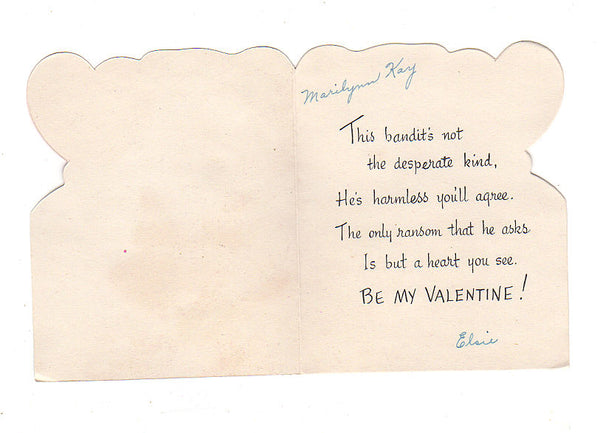 Marilynn Kay
This bandit's not
the desperate kind,
He's harmless you'll agree.
The only ransom that he asks
Is but a heart you see.
BE MY VALENTINE!
Elsie